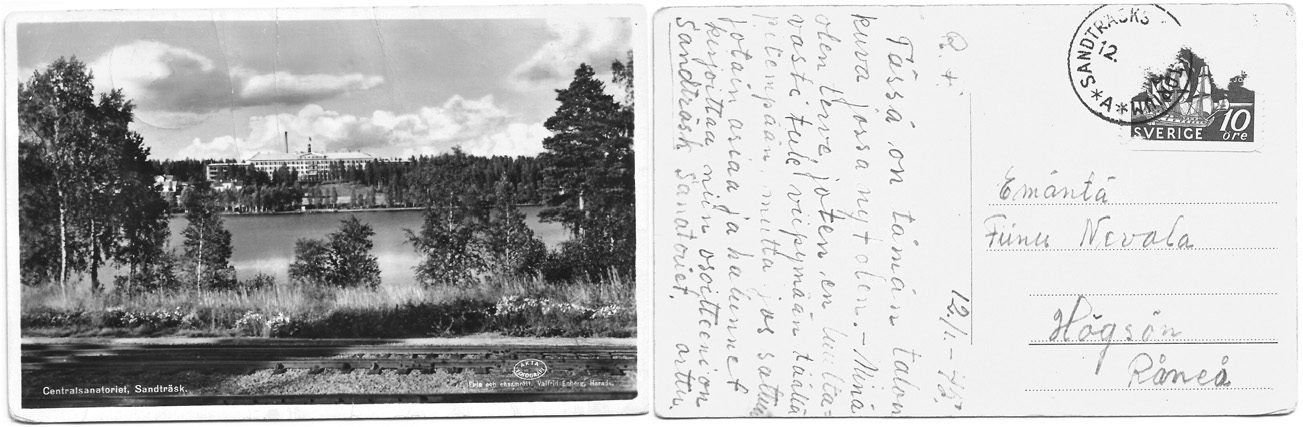 Centralsanatoriet, Sandträsk.
ÄKTA
FOTOGRAFI
Foto och ensamrätt. Valfrid Enberg, Harads.
SANDTRÄSK
12.
*A*
SVERIGE 10
öre
R. t.
12/11-45.
Tässä on tämän talon
kuva jossa nyt olen.- Minä
olen terve, joten en luulta-
vasti tule viipymään täällä
pitempään, mutta jos sattuu
jotain asiaa ja halunnet
kirjoittaa niin osoitteeni on
Sandträsk Sanatoriet. anttu
Emäntä
Nevala
Högsön
Råneå